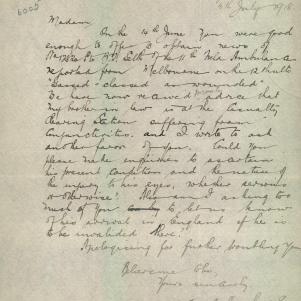 6005
4th July 1918
Madam
On the 14th June you were good
enough to offer to obtain news of
Pte A. J. of the 11th Field Ambulance
reported from Melbourne on the 12th ulto
"Gassed - classed as wounded"
We have now received advice that
my brother in law is at the Casualty
Clearing Station suffering from
Conjunctivitis. and I write to ask
another favor of you. Could you
please make enquiries to ascertain
his present condition and the nature of
the injury to his eyes, whether serious
or otherwise? Also am I asking too
much of you to let me know
of his arrival in England if he is
to be invalided there.
Apologising for further troubling you
Believe me
Yours sincerely